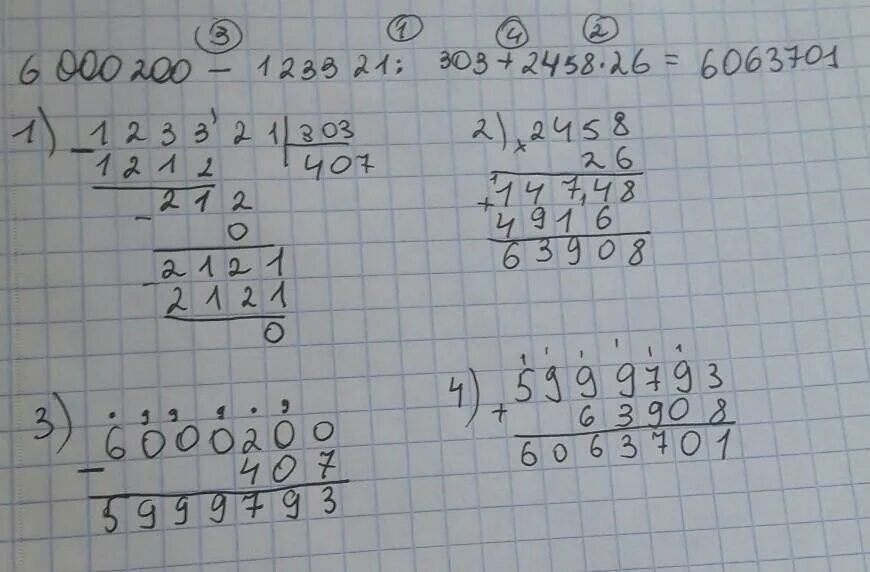 ③ ① ④ ②
6 000 200 - 123321 : 303 + 2458 · 26 = 6063701
1) - 123321 | 303
1212 | 407
- 212
0
- 2121
2121
0
2) × 2458
26
+ 14748
4916
63908
3) - 6000200
407
5999793
4) + 5999793
63908
6063701